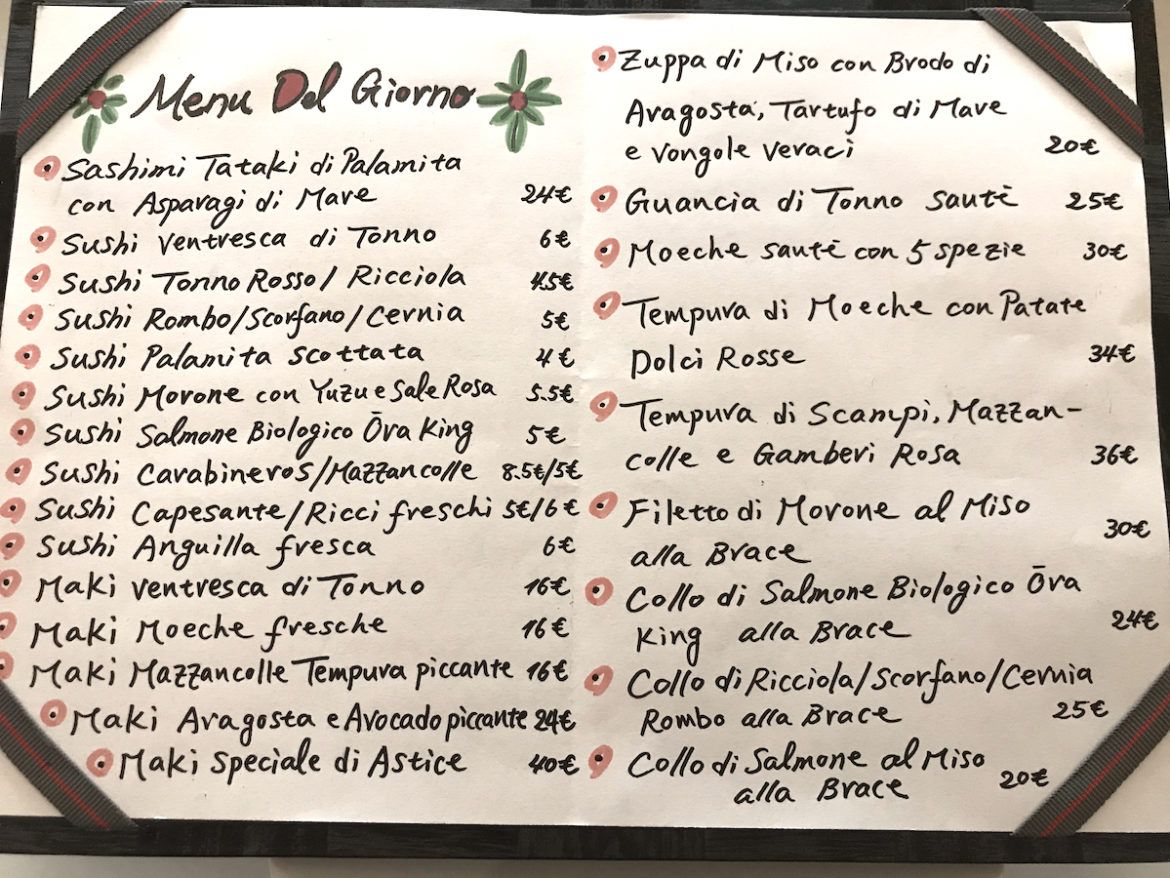 Menu Del Giorno
Sashimi Tataki di Palamita
con Asparagi di Mare 24€
Sushi Ventresca di Tonno 6€
Sushi Tonno Rosso/Ricciola 4.5€
Sushi Rombo/Scorfano/Cernia 5€
Sushi Palamita scottata 4€
Sushi Morone con Yuzu e Sale Rosa 5.5€
Sushi Salmone Biologico Ōra King 5€
Sushi Carabineros/Mazzancolle 8.5€/5€
Sushi Capesante/Ricci freschi 5€/6€
Sushi Anguilla fresca 6€
Maki Ventresca di Tonno 16€
Maki Moeche fresche 16€
Maki Mazzancolle Tempura piccante 16€
Maki Aragosta e Avocado piccante 24€
Maki Speciale di Astice 40€
Zuppa di Miso con Brodo di
Aragosta, Tartufo di Mare
e Vongole Veraci 20€
Guancia di Tonno sautè 25€
Moeche sautè con 5 spezie 30€
Tempura di Moeche con Patate
Dolci Rosse 34€
Tempura di Scampi, Mazzan-
colle e Gamberi Rosa 36€
Filetto di Morone al Miso
alla Brace 30€
Collo di Salmone Biologico Ōra
King alla Brace 24€
Collo di Ricciola/Scorfano/Cernia
Rombo alla Brace 25€
Collo di Salmone al Miso
alla Brace 20€